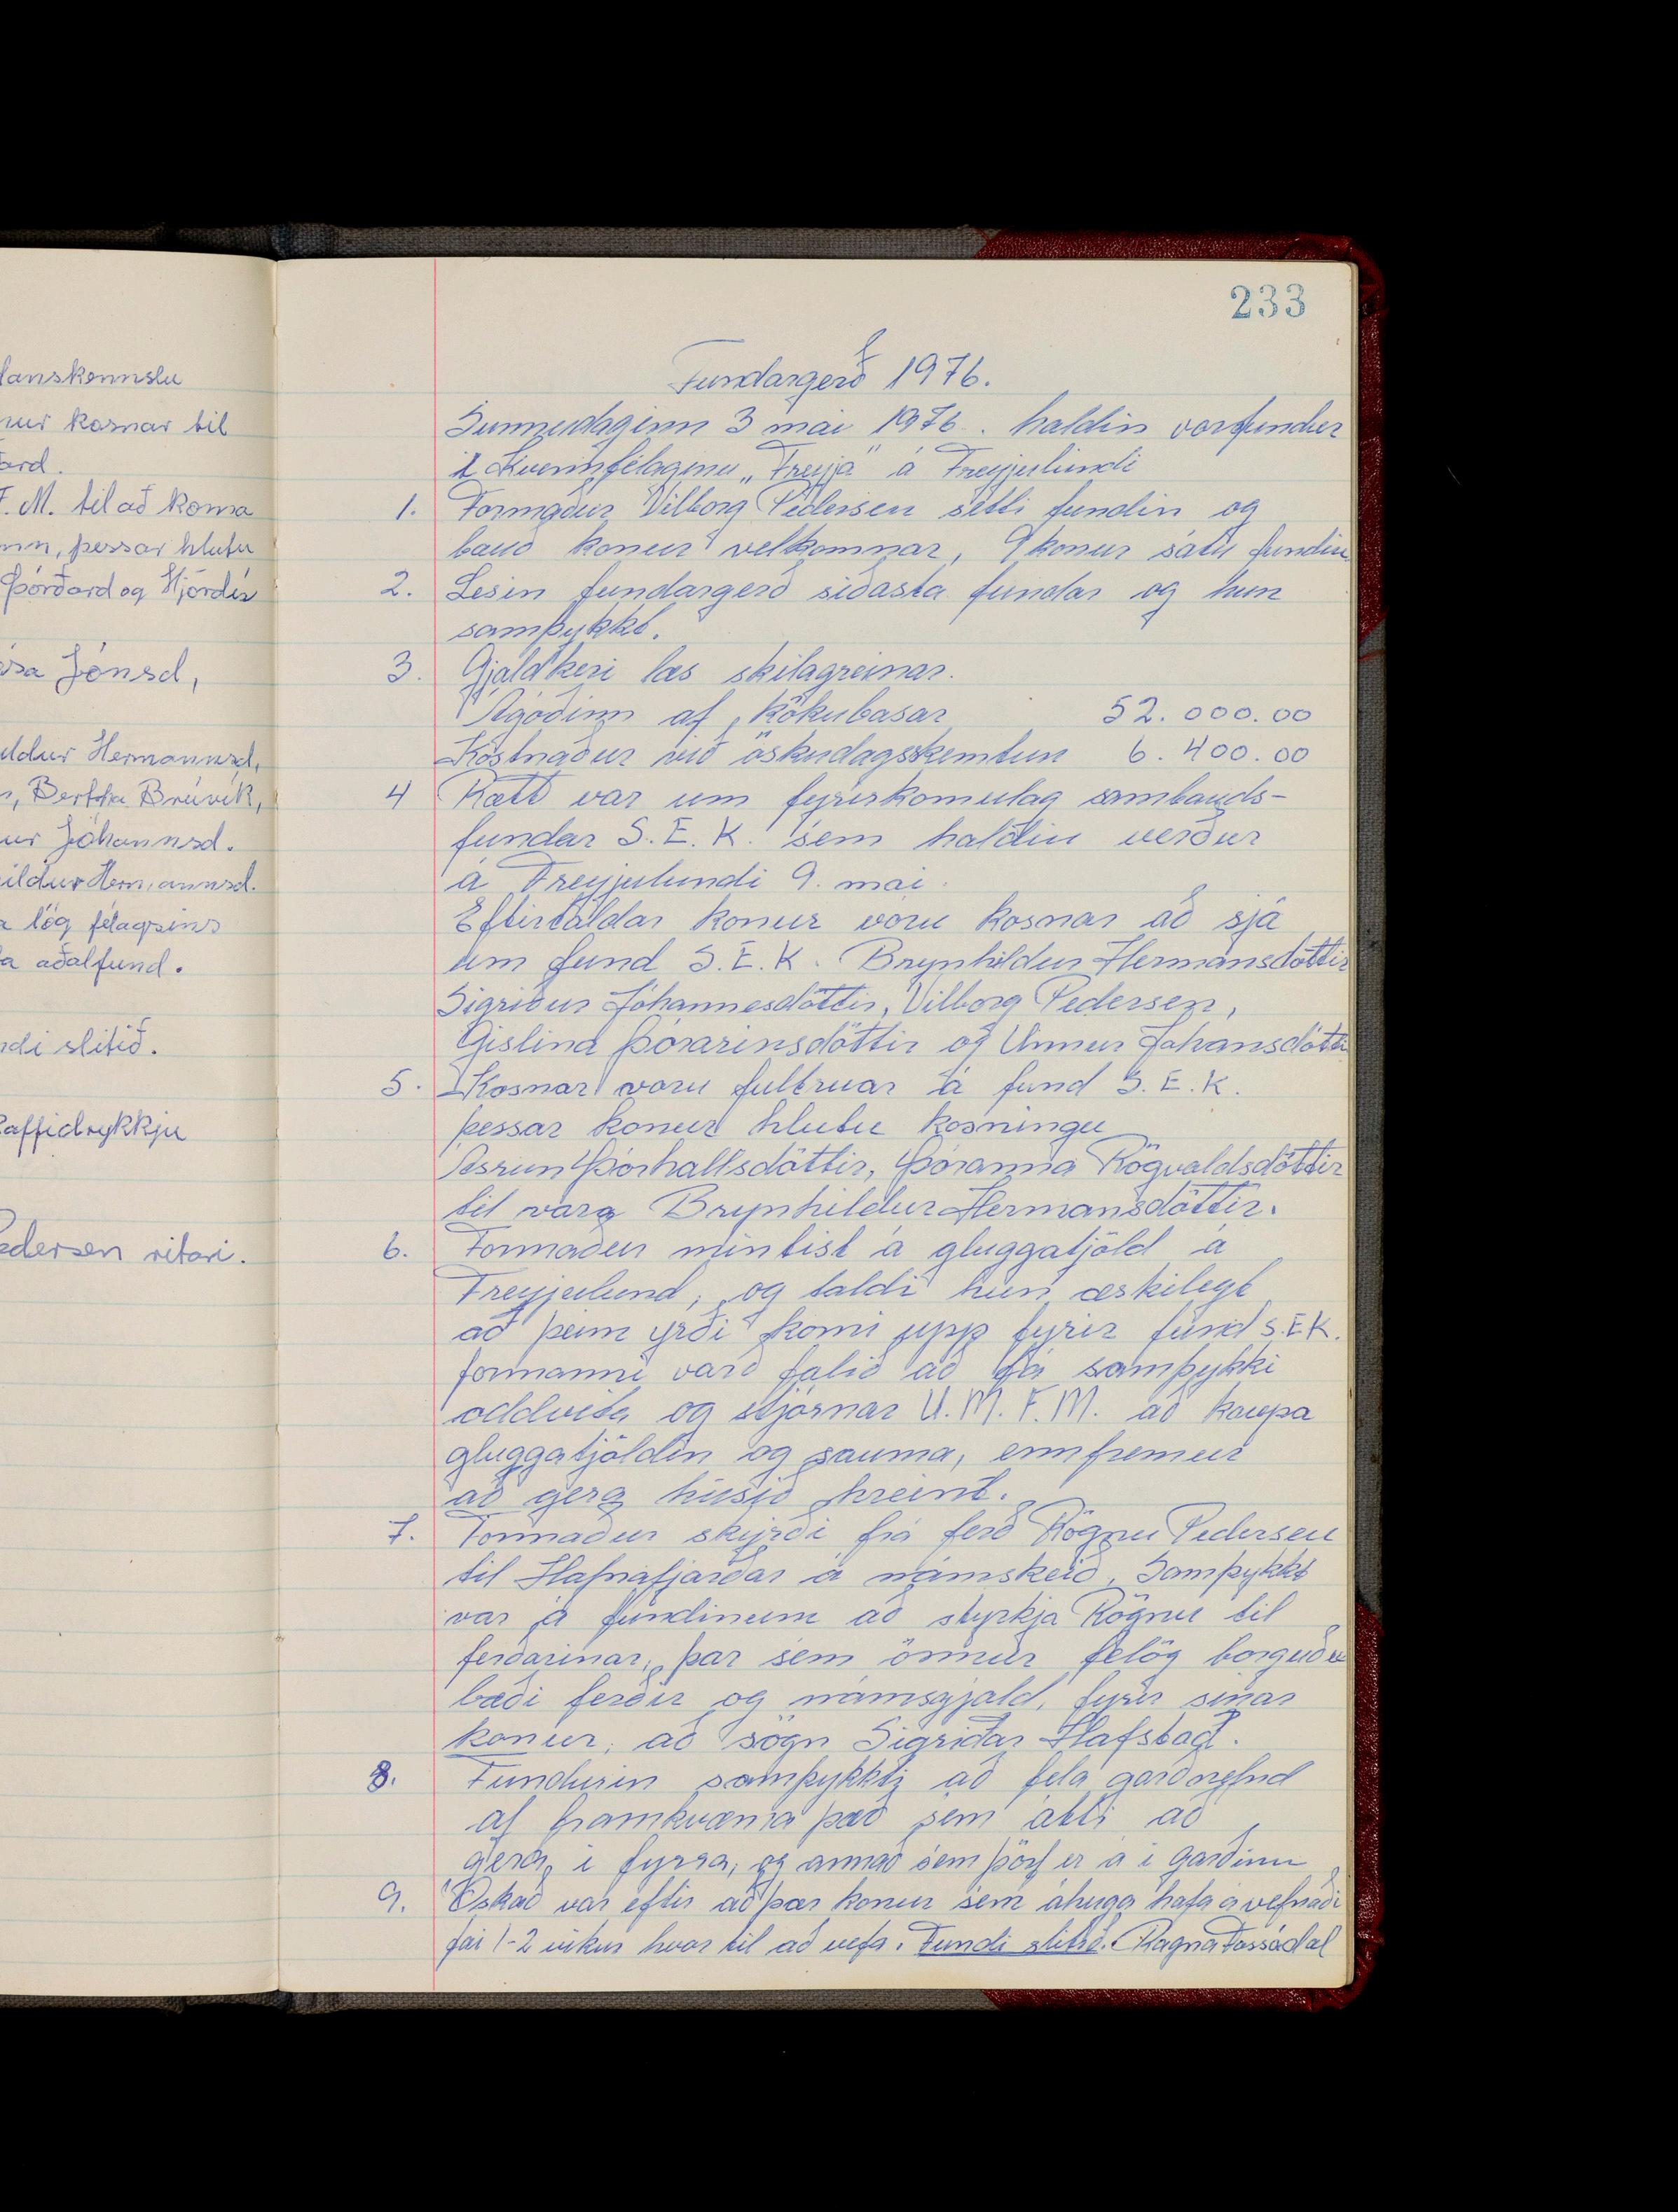 lanskennslu
nur kosnar til
ard.
F. M. til að koma
nn, þessar hlutu
Þórðard og Hjördís
ísa Jónsd,
ildur Hermannsd,
n, Bertha Bruvik,
ur Jóhannsd.
hildur Hermannsd.
a lög félagsins
a aðalfund.
ndi slitið.
kaffidrykkju
edersen ritari.
233
Fundargerð 1976.
Sunnudaginn 3 mai 1976. haldin vorfundur
í Kvennfélaginu „Freyja" á Freyjulundi
1. Formaður Vilborg Pedersen setti fundin og
bauð konur velkomnar, 9 konur sátu fundin
2. Lesin fundargerð síðasta fundar og hun
samþykkt.
3. Gjaldkeri las skilagreinar.
Ágóðinn af kökubasar 52.000.00
Kostnaður við öskudagsskemtun 6.400.00
4 Rætt var um fyrirkomulag sambands-
fundar S.E.K. sem haldin verður
á Freyjulundi 9. mai.
Eftirtaldar konur voru kosnar að sjá
um fund S.E.K. Brynhildur Hermansdóttir
Sigriður Jóhannesdóttir, Vilborg Pedersen,
Gislina Þórarinsdóttir og Unnur Johansdótti
5. Kosnar voru fulltruar á fund S.E.K.
þessar konur hlutu kosningu
Ásrun Þórhallsdóttir, Þóranna Rögvaldsdóttir
til vara Brynhildur Hermansdóttir.
6. Formaður mintist á gluggatjöld á
Freyjulund, og taldi hún æskilegt
að þeim yrði komi upp fyrir fund S.E.K.
formanni varð falið að fá samþykki
oddvita og stjórnar U.M.F.M. að kaupa
gluggatjöldin og sauma, ennfremur
að gera húsið hreint.
7. Formaður skýrði frá ferð Rögnu Pedersen
til Hafnafjarðar á námskeið. Samþykkt
var á fundinum að styrkja Rögnu til
ferðarinar, þar sem önnur felög borguðu
bæði ferðir og námsgjald, fyrir sinar
konur, að sögn Sigriðar Hafstað.
8. Fundurin samþykkti að fela garðnefnd
af framkvæma það sem átti að
gera, i fyrra, og annað sem þörf er á i garðinn
9. Óskað var eftir að þær konur sem áhuga hafa á vefnaði
fái 1-2 vikur hvor til að vefa. Fundi slitið. Ragna Fossádal